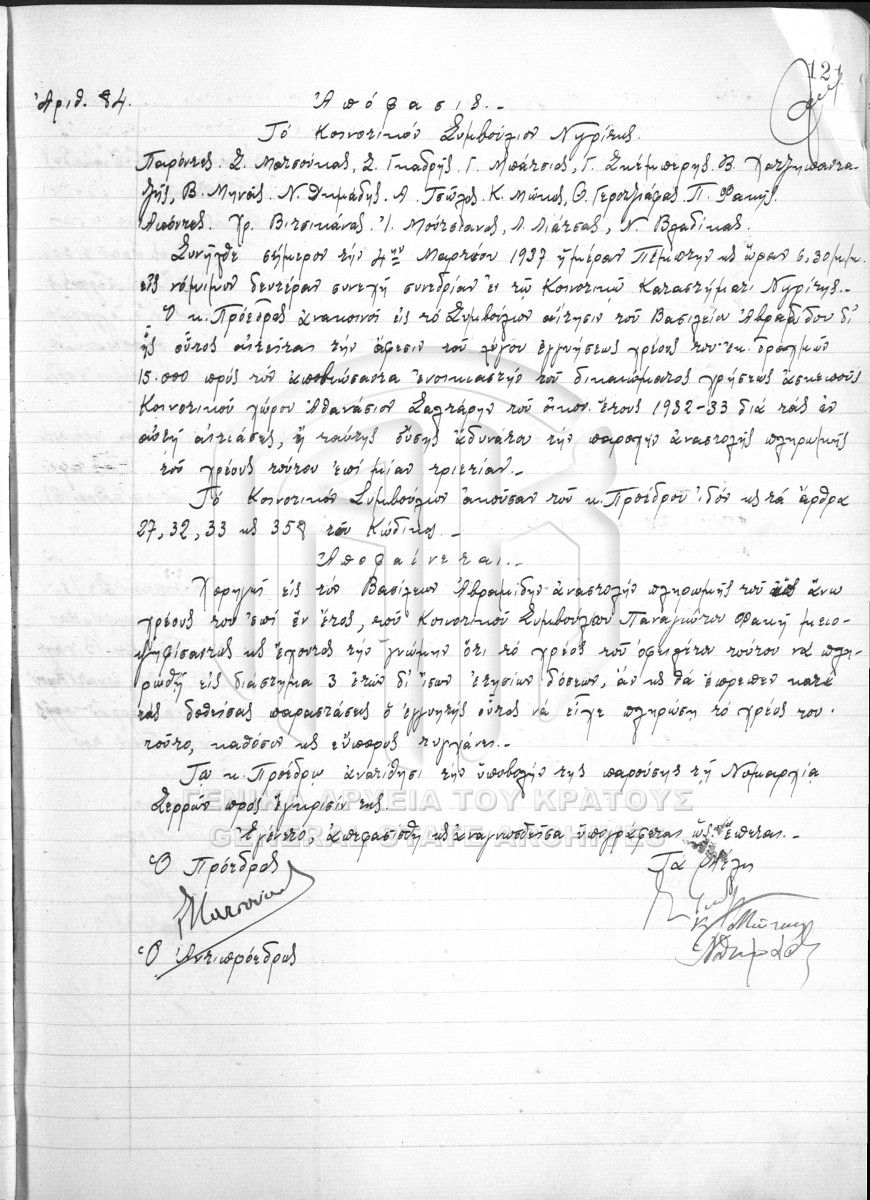 121
Ἀριθ. 84.
Ἀπόφασις.-
Τό Κοινοτικόν Συμβούλιον Νιγρίτης.
Παρόντες. Σ. Ματσούκας, Σ. Γκαδρής, Γ. Μπάτσιος, Γ. Σκέμπερης, Β. Χατζηπαντα-
ζῆς, Β. Μηνᾶς, Ν. Δημάδης. Α. Τσώλος. Κ. Μώκας, Θ. Γεροτζιάφας. Π. Φακῆς.
Ἀπόντες. Χρ. Βιτσικάνος. Ἰ. Μούτσιανος, Α. Λιάτσας, Ν. Βλαδίκας.
Συνῆλθε σήμερον τήν 4ην Μαρτίου 1937 ἡμέραν Πέμπτην κς ὥραν 6,30 μ.μ.
εἰς νόμιμον δευτέραν συνεχῆ συνεδρίαν ἐν τῷ Κοινοτικῷ Καταστήματι Νιγρίτης.-
Ὁ κ. Πρόεδρος ἀνακοινοῖ εἰς τό Συμβούλιον αἴτησιν τοῦ Βασιλείου Ἀβραμίδου δι'
ἧς οὗτος αἰτεῖται τήν ἄφεσιν τοῦ λόγου ἐγγυήσεως χρέους του ἐκ δραχμῶν
15.000 πρός τόν ἀποβιώσαντα ἐνοικιαστήν τοῦ δικαιώματος χρήσεως ἀσκεποῦς
Κοινοτικοῦ χώρου Ἀθανάσιον Σαλτάρην τοῦ οἰκον. ἔτους 1932-33 διά τάς ἐν
αὐτῇ αἰτίας, ἤ ταύτης οὔσης ἀδυνάτου τήν παροχήν ἀναστολῆς πληρωμῆς
τοῦ χρέους τούτου ἐπί μίαν τριετίαν.-
Τό Κοινοτικόν Συμβούλιον ἀκοῦσαν τοῦ κ. Προέδρου ἰδόν κς τά ἄρθρα
27, 32, 33 κς 358 τοῦ Κώδικος.-
Ἀποφαίνεται.-
Χορηγεῖ εἰς τόν Βασίλειον Ἀβραμίδην ἀναστολήν πληρωμῆς τοῦ ὡς ἄνω
χρέους του ἐπί ἕν ἔτος, τοῦ Κοινοτικοῦ Συμβούλου Παναγιώτου Φακῆ μειο-
ψηφίσαντος κς ἔχοντος τήν γνώμην ὅτι τό χρέος τοῦ ὀφειλέτου τούτου νά πλη-
ρωθῇ εἰς διάστημα 3 ἐτῶν δι' ἴσων ἐτησίων δόσεων, ἄν κς θά ἔπρεπεν κατά
τάς δοθείσας παραστάσεις ὁ ἐγγυητής οὗτος νά εἶχε πληρώσῃ τό χρέος του
τοῦτο, καθόσον κς εὔπορος τυγχάνει.-
Τῷ κ. Προέδρῳ ἀνατίθησι τήν ὑποβολήν τῆς παρούσης τῇ Νομαρχίᾳ
Σερρῶν πρός ἔγκρισίν της.
Ἐγένετο, ἀπεφασίσθη κς ἀναγνωσθεῖσα ὑπογράφεται ὡς ἕπεται.-
Ὁ Πρόεδρος
Τά Μέλη
Ὁ Ἀντιπρόεδρος
ΓΕΝΙΚΑ ΑΡΧΕΙΑ ΤΟΥ ΚΡΑΤΟΥΣ
GENERAL STATE ARCHIVES